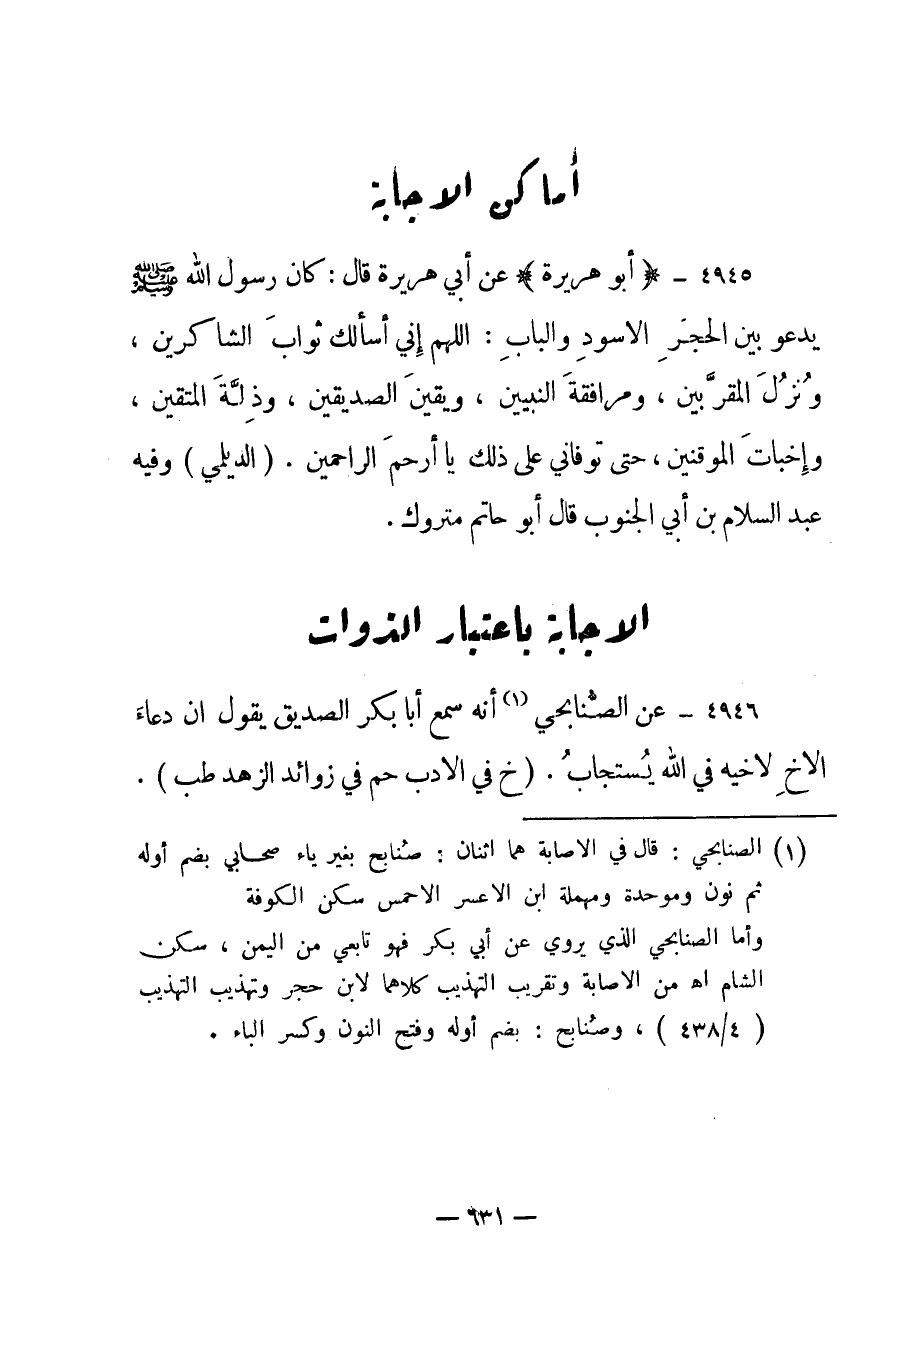 أماكن الاجابة
٤٩٤٥ ـ ﴿ أبو هريرة ﴾ عن أبي هريرة قال : كان رسول الله ﷺ
يدعو بين الحجَرِ الاسودِ والبابِ : اللهم إني أسألك ثوابَ الشاكرين ،
ونُزُلَ المقرَّبين ، ومرافقةَ النبيين ، ويقينَ الصديقين ، وذِلَّةَ المتقين ،
وإخباتَ الموقنين ، حتى توفاني على ذلك يا أرحمَ الراحمين . ( الديلمي ) وفيه
عبد السلام بن أبي الجنوب قال أبو حاتم متروك .
الاجابة باعتبار الذوات
٤٩٤٦ ـ عن الصُّنابحي (١) أنه سمع أبا بكر الصديق يقول ان دعاءَ
الاخِ لاخيه في الله يُستجابُ . ( خ في الادب حم في زوائد الزهد طب ) .
(١) الصنابحي : قال في الاصابة هما اثنان : صُنابح بغير ياء صحابي بضم أوله
ثم نون وموحدة ومهملة ابن الاعسر الاحمس سكن الكوفة
وأما الصنابحي الذي يروي عن أبي بكر فهو تابعي من اليمن ، سكن
الشام اه من الاصابة وتقريب التهذيب كلاهما لابن حجر وتهذيب التهذيب
( ٤/٤٣٨ ) ، وصُنابح : بضم أوله وفتح النون وكسر الباء .
— ٦٣١ —